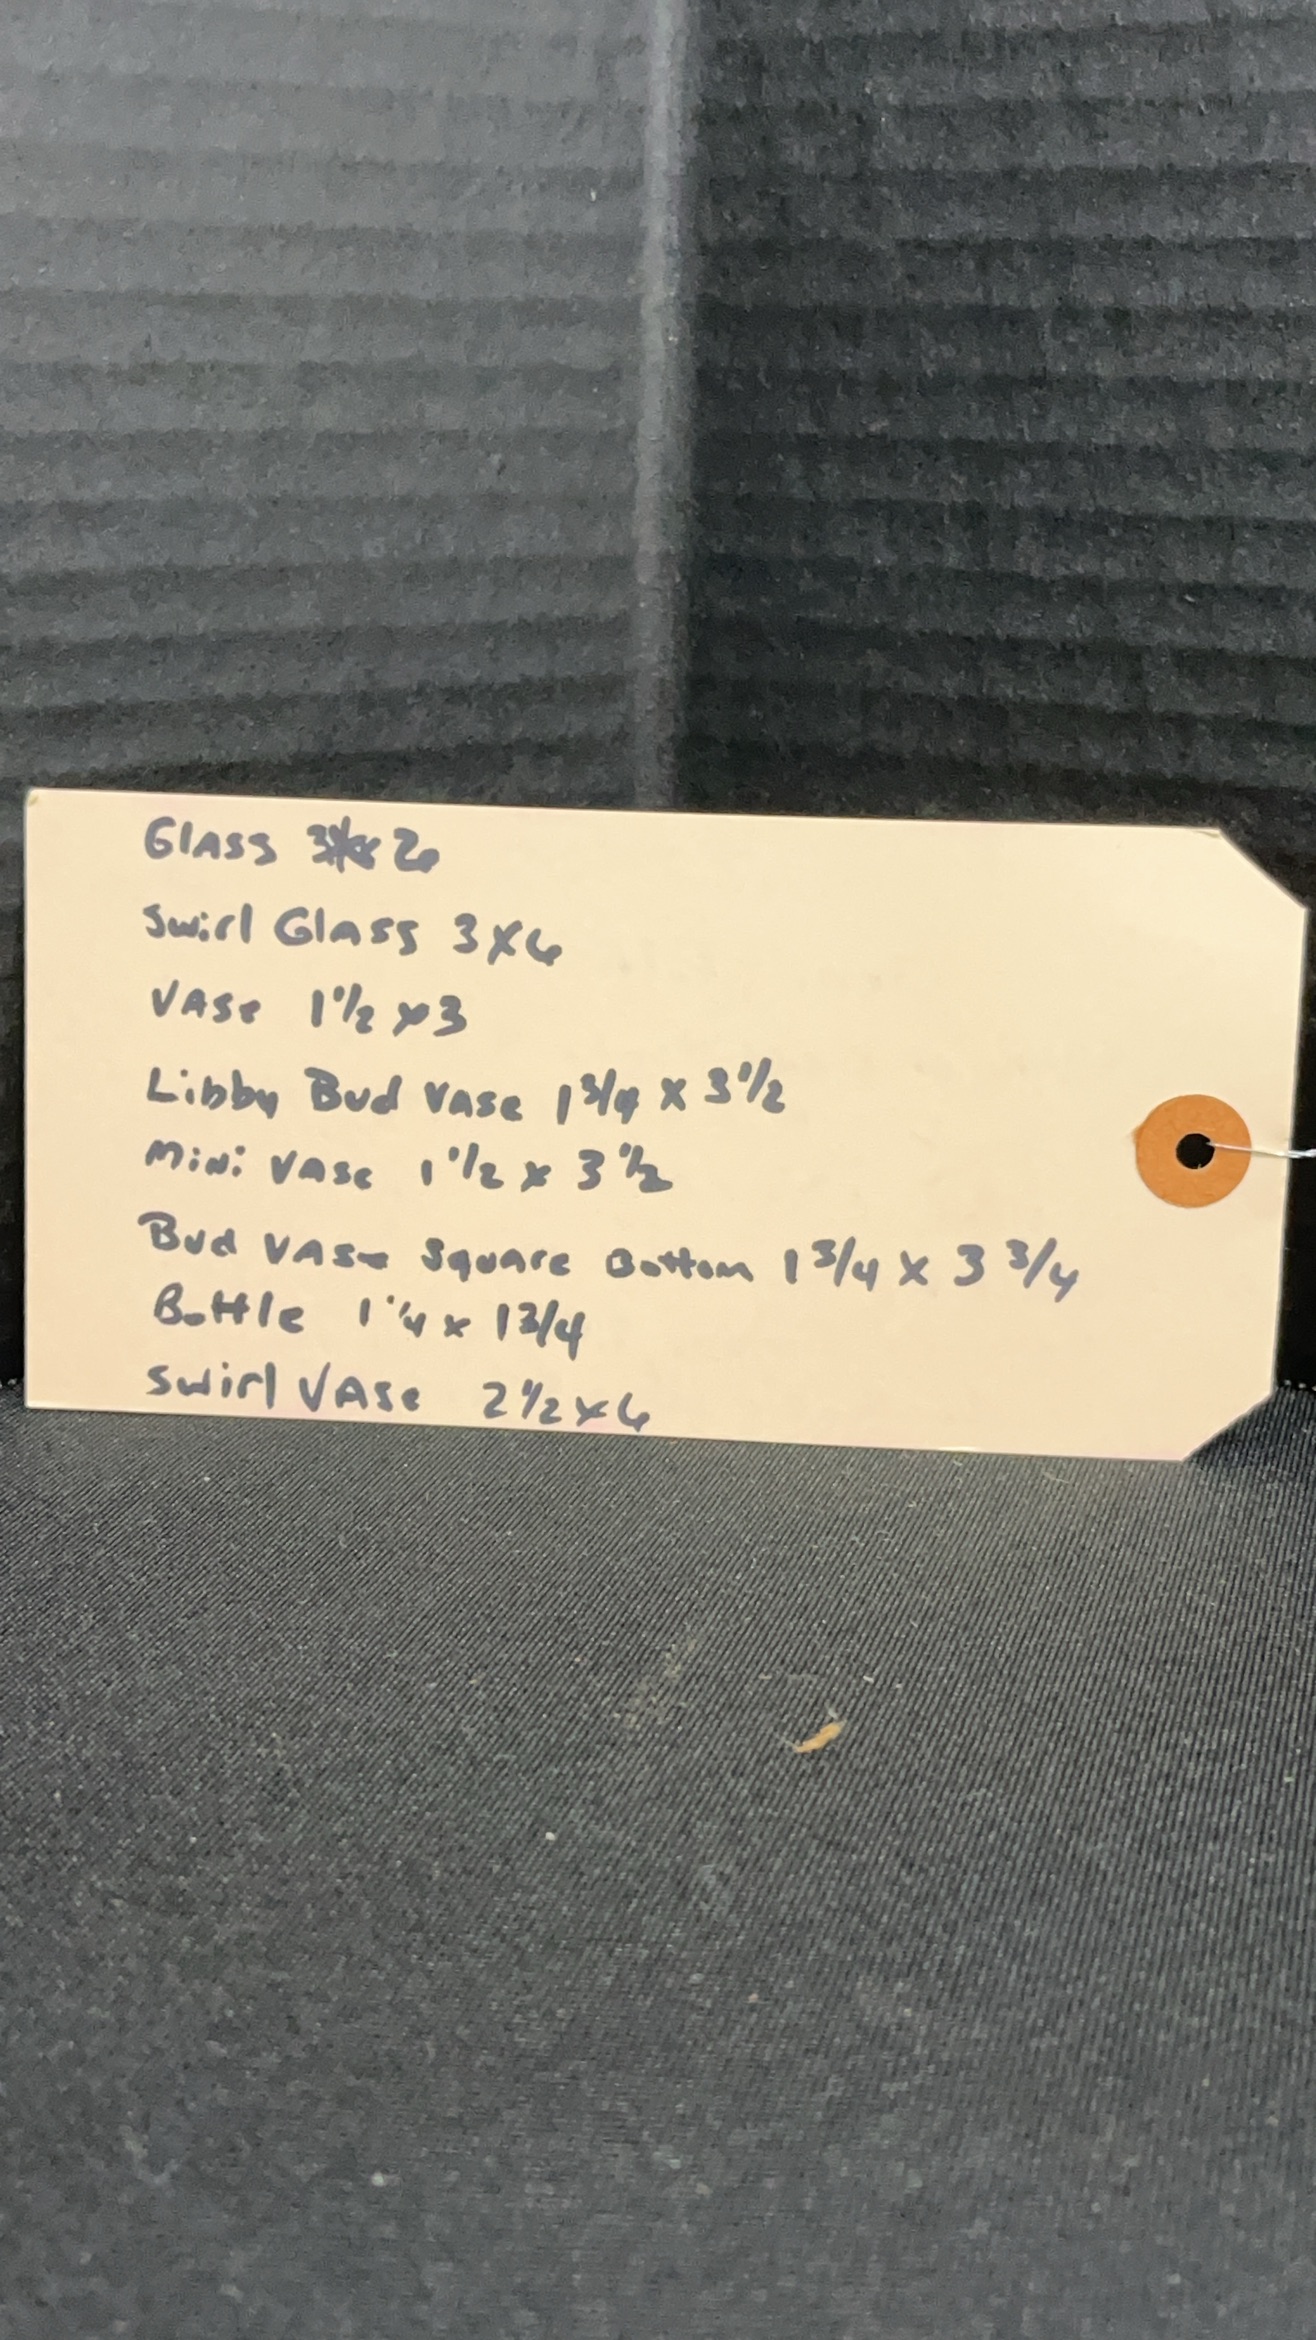 Glass
Swirl Glass 3 x 6
Vase 1 1/2 x 3
Libby Bud Vase 1 3/4 x 3 1/2
Mini Vase 1 1/2 x 3 1/2
Bud Vase Square Bottom 1 3/4 x 3 3/4
Bottle 1 1/4 x 1 3/4
Swirl Vase 2 1/2 x 6